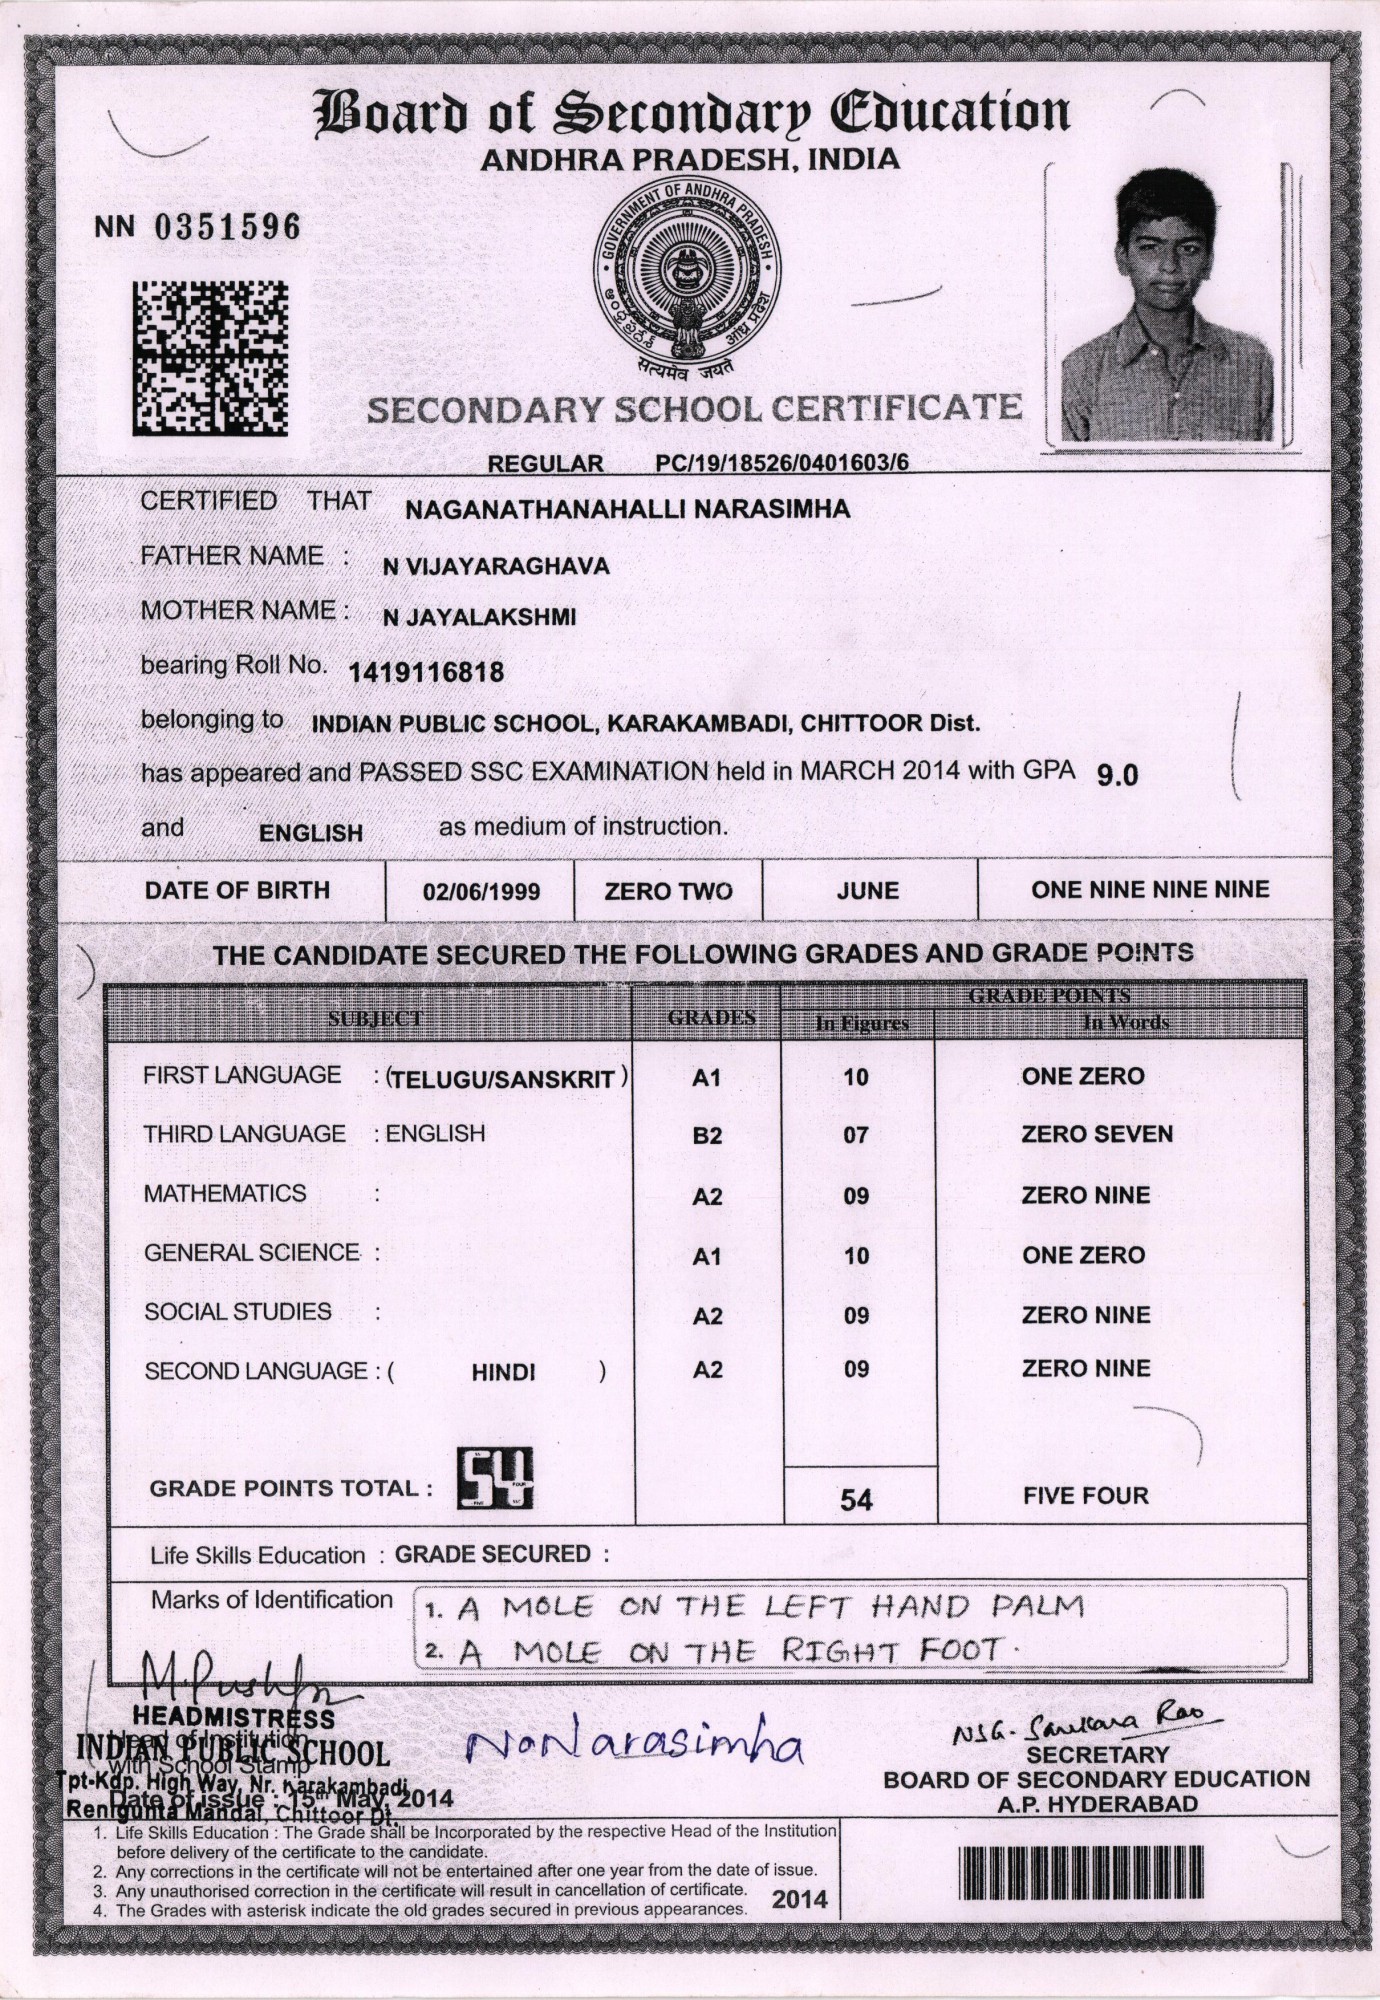 Board of Secondary Education
ANDHRA PRADESH, INDIA
NN 0351596
GOVERNMENT OF ANDHRA PRADESH
ఆంధ్రప్రదేశ్
आंध्र प्रदेश
सत्यमेव जयते
SECONDARY SCHOOL CERTIFICATE
REGULAR PC/19/18526/0401603/6
CERTIFIED THAT NAGANATHANAHALLI NARASIMHA
FATHER NAME : N VIJAYARAGHAVA
MOTHER NAME : N JAYALAKSHMI
bearing Roll No. 1419116818
belonging to INDIAN PUBLIC SCHOOL, KARAKAMBADI, CHITTOOR Dist.
has appeared and PASSED SSC EXAMINATION held in MARCH 2014 with GPA 9.0
and ENGLISH as medium of instruction.
DATE OF BIRTH 02/06/1999 ZERO TWO JUNE ONE NINE NINE NINE
THE CANDIDATE SECURED THE FOLLOWING GRADES AND GRADE POINTS
SUBJECT GRADES GRADE POINTS
In Figures In Words
FIRST LANGUAGE : (TELUGU/SANSKRIT) A1 10 ONE ZERO
THIRD LANGUAGE : ENGLISH B2 07 ZERO SEVEN
MATHEMATICS : A2 09 ZERO NINE
GENERAL SCIENCE : A1 10 ONE ZERO
SOCIAL STUDIES : A2 09 ZERO NINE
SECOND LANGUAGE : ( HINDI ) A2 09 ZERO NINE
GRADE POINTS TOTAL : 54 54 FIVE FOUR
Life Skills Education : GRADE SECURED :
Marks of Identification
1. A MOLE ON THE LEFT HAND PALM
2. A MOLE ON THE RIGHT FOOT.
M. Pushpa
HEADMISTRESS
Head of Institution
INDIAN PUBLIC SCHOOL
with School Stamp
Tpt-Kdp. High Way, Nr. Karakambadi
Date of issue : 15th May, 2014
Renigunta Mandal, Chittoor Dt.
N.Narasimha
NSG. Sankara Rao
SECRETARY
BOARD OF SECONDARY EDUCATION
A.P. HYDERABAD
1. Life Skills Education : The Grade shall be Incorporated by the respective Head of the Institution
before delivery of the certificate to the candidate.
2. Any corrections in the certificate will not be entertained after one year from the date of issue.
3. Any unauthorised correction in the certificate will result in cancellation of certificate.
4. The Grades with asterisk indicate the old grades secured in previous appearances.
2014